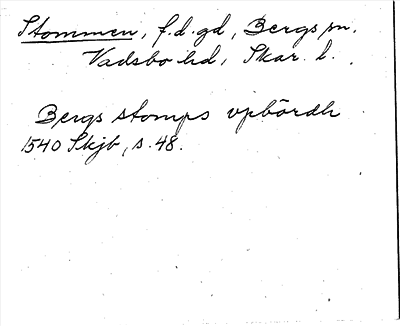 Stommen, f.d. gd, Bergs sn.
Vadsbo hd, Skar. l.
Bergs stomps vpbördh
1540 Skjb, s. 48.